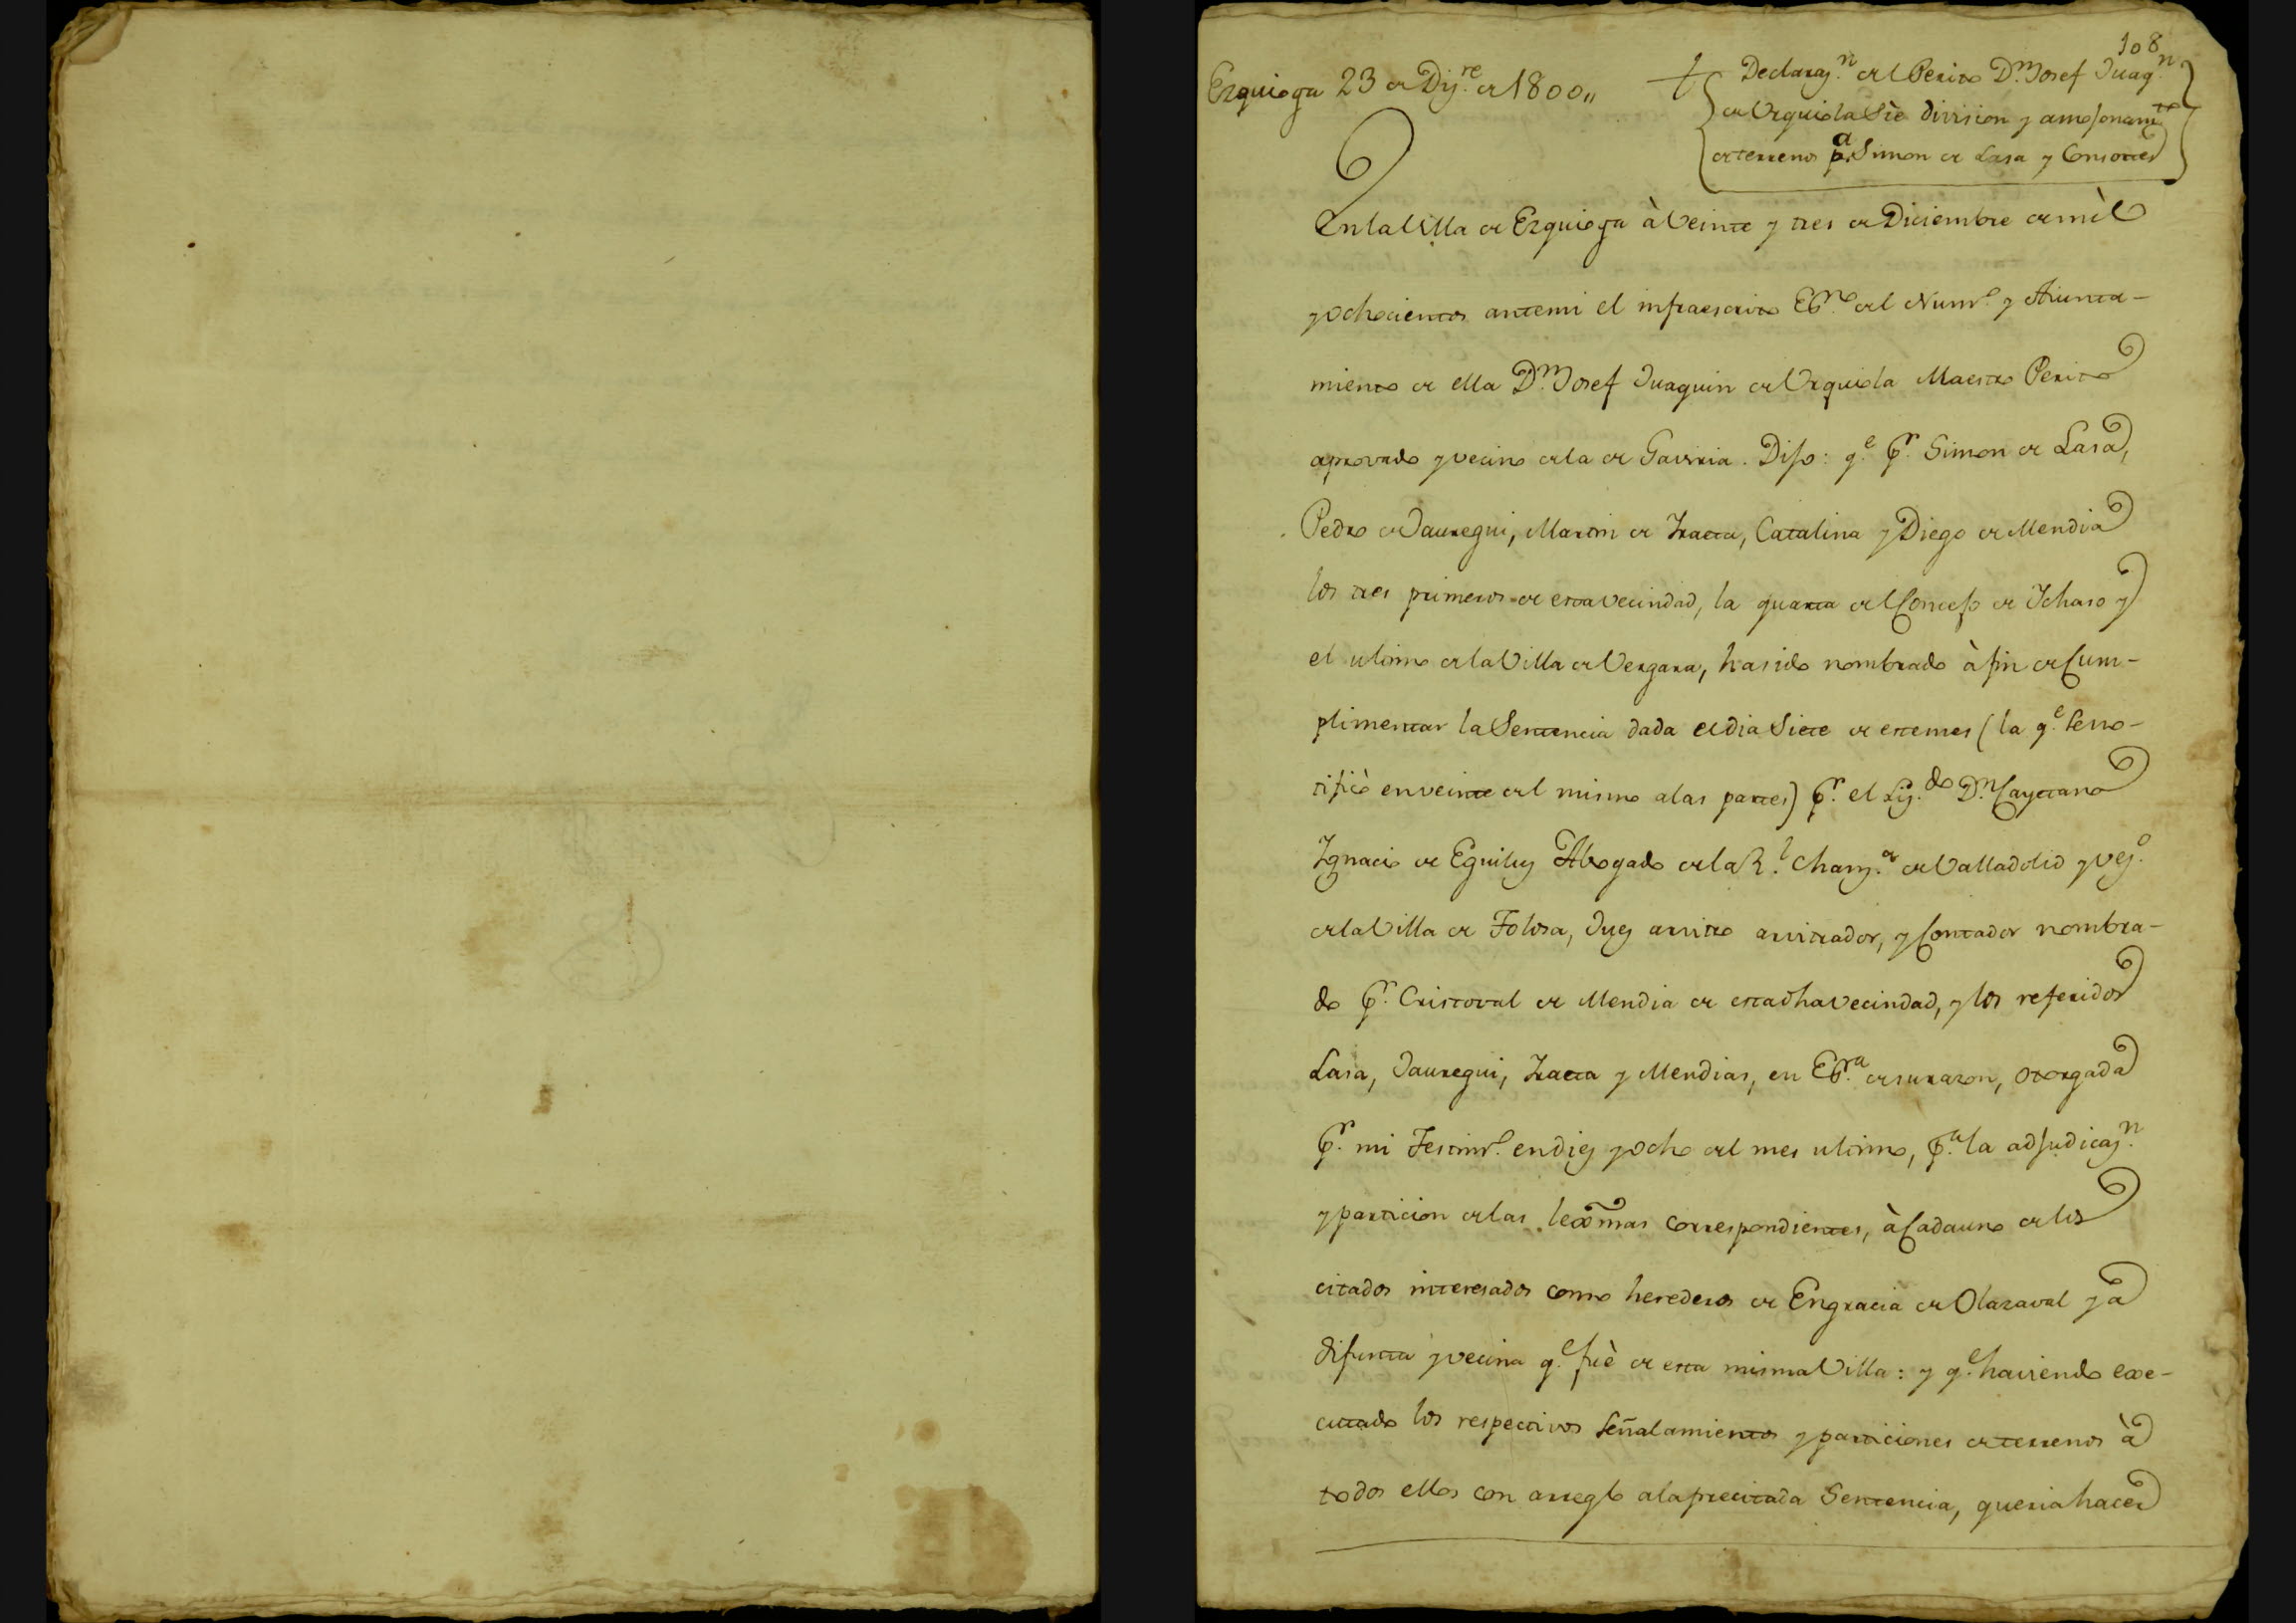 108
Ezquioga 23 de Diz.re de 1800,,
Declaraz.n del Perito D.n Josef Juaq.n
de Urquiola Sre division y amojonam.to
de terrenos p.a Simon de Lasa y Consortes
En la Villa de Ezquioga à Veinte y tres de Diciembre de mìl
y ochocientos ante mi el infraescrito Es.no del Num.o y Aiunta-
miento de ella D.n Josef Juaquin de Urquiola Maestro Perito
aprovado y vecino de la de Gaviria. Dijo: q.e p.r Simon de Lasa,
Pedro de Jauregui, Martin de Yraeta, Catalina y Diego de Mendia
los tres primeros de esta vecindad, la quarta del Concejo de Ichaso y
el ultimo de la Villa de Vergara, ha sido nombrado à fin de Cum-
plimentar la Sentencia dada el dia Siete de este mes (la q.e se no-
tificò en veinte del mismo a las partes) p.r el Liz.do D.n Cayetano
Ygnacio de Eguiluz Abogado de la R.l Chanz.a de Valladolid y vez.o
de la Villa de Tolosa, Juez arvitro arvitrador, y Contador nombra-
do p.r Cristoval de Mendia de esta dha vecindad, y los referidos
Lasa, Jauregui, Yraeta y Mendias, en Es.ra de su razon, otorgada
p.r mi Testim.o en diez y ocho del mes ultimo, p.a la adjudicaz.n
y particion de las lexmas correspondientes, à Cada uno de los
citados interesados como herederos de Engracia de Olazaval ya
difunta y vecina q.e fuè de esta misma Villa: y q.e haviendo exe-
cutado los respectivos Señalamientos y particiones de terrenos à
todos ellos con arreglo a la precitada Sentencia, queria hacer